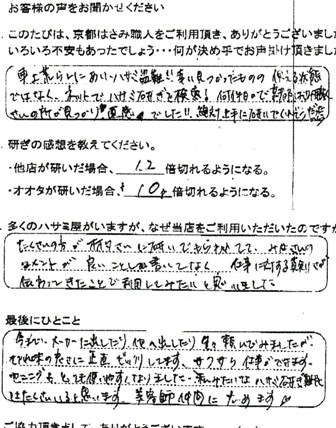 お客様の声をお聞かせください
. このたびは、京都はさみ職人をご利用頂き、ありがとうございまし
いろいろ不安もあったでしょう・・・何が決め手でお声掛け頂きまし
車上荒らしにあい、ハサミ盗難!! 見つかったものの 使える状態
ではなく、ネットでハサミ研ぎと検索!
さんの所が見つかり"直感"でした!! 絶対上手に研いでくれそうだ
. 研ぎの感想を教えてください。
・他店が研いだ場合、 1.2 倍切れるようになる。
・オオタが研いだ場合、 10 倍切れるようになる。
. 多くのハサミ屋がいますが、なぜ当店をご利用いただいたのですか
たくさんの方が 研いでもらわれてて、みなさんの
コメントが 良いことしか書いてなく、仕事に対する真剣さが
伝わってきたことで利用してみたいと思いました。
最後にひとこと
今まで、メーカーに出したり、他へ出したり 色々 頼んでみましたが、
正直 びっくりしてます。サクサク 仕事ができます。
セニングも、とっても使いやすくなりました。私みたいなハサミ研ぎ難民
はたくさんいると思います。美容師仲間に すすめます
ご協力頂きまして、ありがとうございます